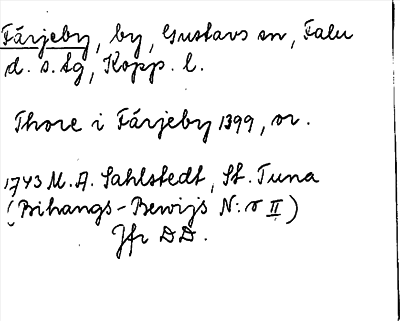 Färjeby, by, Gustavs sn, Falu
d. s. lg, Kopp. l.
Thore i Färjeby 1399, or.
1743 M. A. Sahlstedt, St. Tuna
(Bihangs-Bewijs N:o II)
Jfr DD.